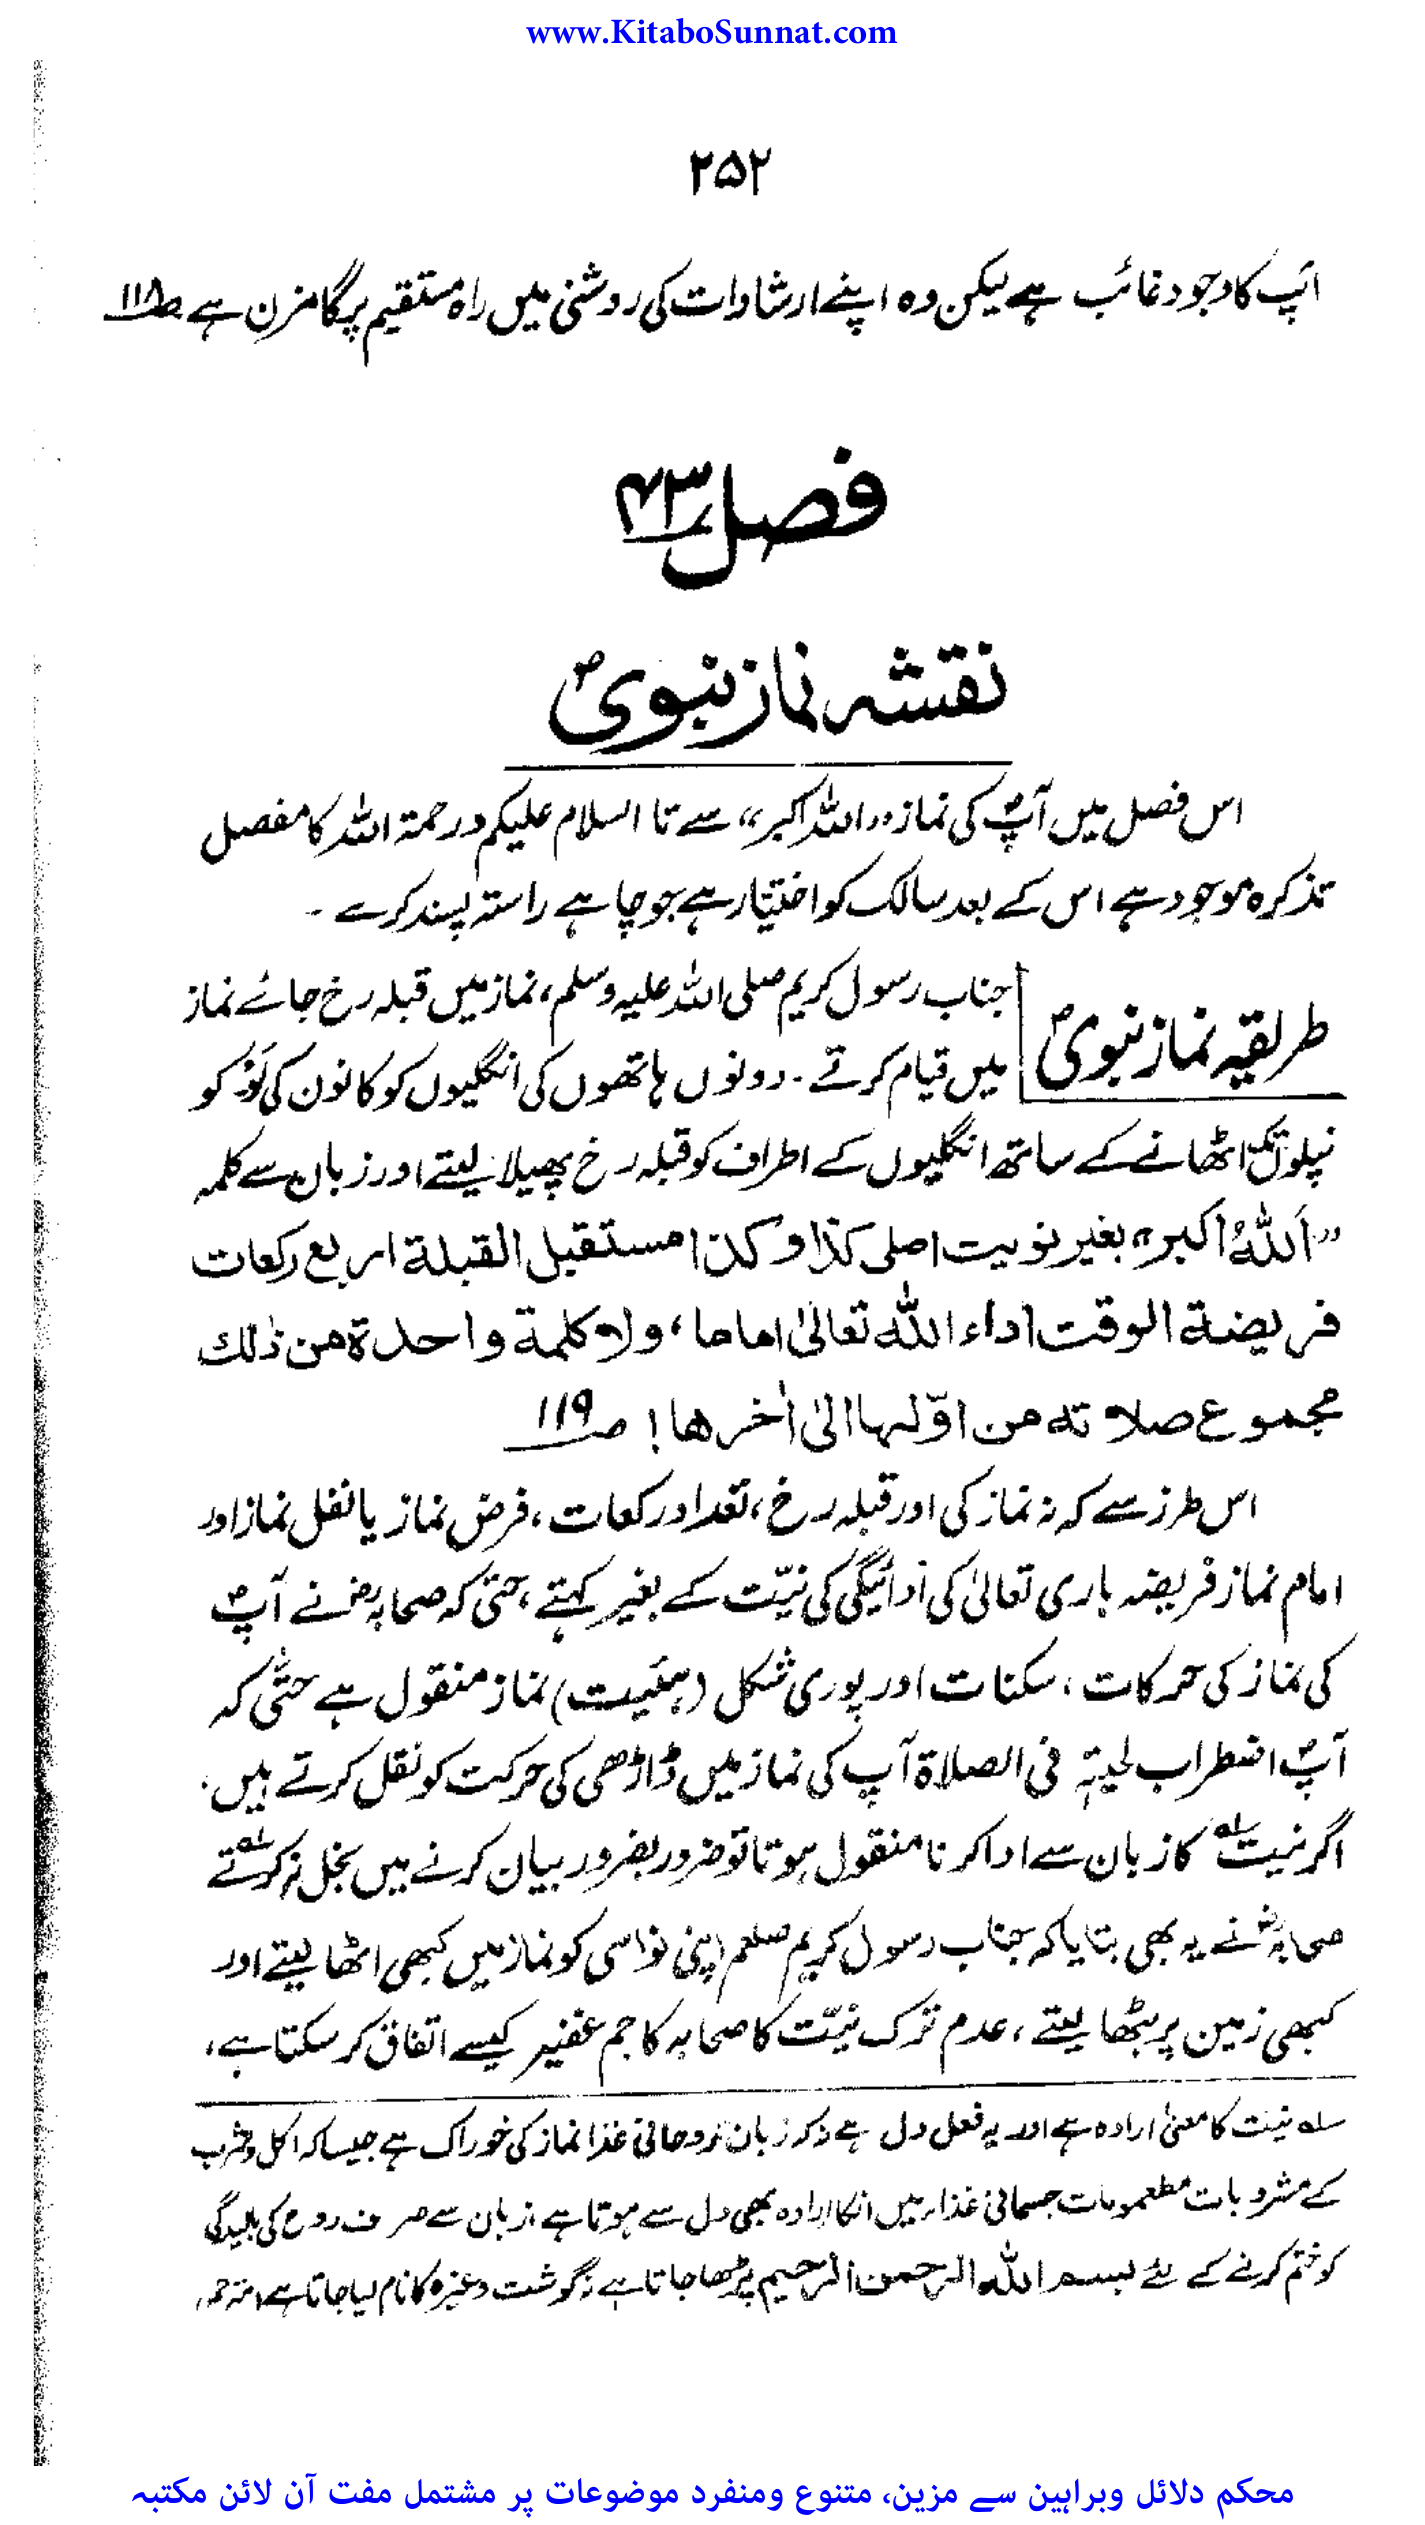 www.KitaboSunnat.com
۲۵۲
آپ کا وجود غائب ہے لیکن وہ اپنے ارشادات کی روشنی میں راہ مستقیم پر گامزن ہے ص۱۱۸
فصل ۴۳
نقشہ نماز نبویؐ
اس فصل میں آپؐ کی نماز ،،اللہ اکبر،، سے تا السلام علیکم ورحمۃ اللہ کا مفصل
تذکرہ موجود ہے اس کے بعد سالک کو اختیار ہے جو چاہے راستہ پسند کرے ۔
طریقیہ نماز نبویؐ
جناب رسول کریم صلی اللہ علیہ وسلم، نماز میں قبلہ رخ جائے نماز
میں قیام کرتے ۔ دونوں ہاتھوں کی انگلیوں کو کانون کی لَوْ کو
نپلوں تک اٹھانے کے ساتھ انگلیوں کے اطراف کو قبلہ رخ پھیلا لیتے اور زبان سے کلمہ
،،اَللہُ اَکبر،، بغیر نویت اصلی کذا وکذا مستقبل القبلة اربع رکعات
فریضة الوقت اداء اللہ تعالیٰ اماما، ولا کلمة واحدة من ذٰلك
مجموع صلاته من اوّلہا الیٰ اٰخرھا! ص۱۱۹
اس طرز سے کہ نہ نماز کی اور قبلہ رخ، تعداد رکعات، فرض نماز یا نفل نماز اور
امام نماز فریضہ باری تعالیٰ کی ادائیگی کی نیّت کے بغیر کہتے، حتیٰ کہ صحابہؓ نے آپؐ
کی نماز کی حرکات، سکنات اور پوری شکل (ہئیت) نماز منقول ہے حتّٰی کہ
آپؐ اضطراب لحیتہٖ فی الصلاۃ آپ کی نماز میں ڈاڑھی کی حرکت کو نقل کرتے ہیں.
اگر نیت؎ کا زبان سے ادا کرنا منقول ہوتا تو ضرور بضرور بیان کرنے میں بخل نہ کرتے
صحابہؓ نے یہ بھی بتایا کہ جناب رسول کریم صلعم اپنی نواسی کو نماز میں کبھی اٹھا لیتے اور
کبھی زمین پر بٹھا لیتے، عدم ترک نیّت کا صحابہ کا جم غفیر کیسے اتفاق کر سکتا ہے،
؎ نیت کا معنیٰ ارادہ ہے اور یہ فعل دل ہے نہ کہ زبان روحانی غذا نماز کی خوراک ہے جیسا کہ اکل وشرب
کے مشروبات مطعمومات جسمانی غذار میں انکا ارادہ بھی دل سے ہوتا ہے زبان سے صرف روح کی بالیدگی
کو ختم کرنے کے لئے بسم اللہ الرحمن الرحیم پڑھا جاتا ہے نہ گوشت وغیرہ کا نام لیا جاتا ہے،
محکم دلائل وبراہین سے مزین، متنوع ومنفرد موضوعات پر مشتمل مفت آن لائن مکتبہ